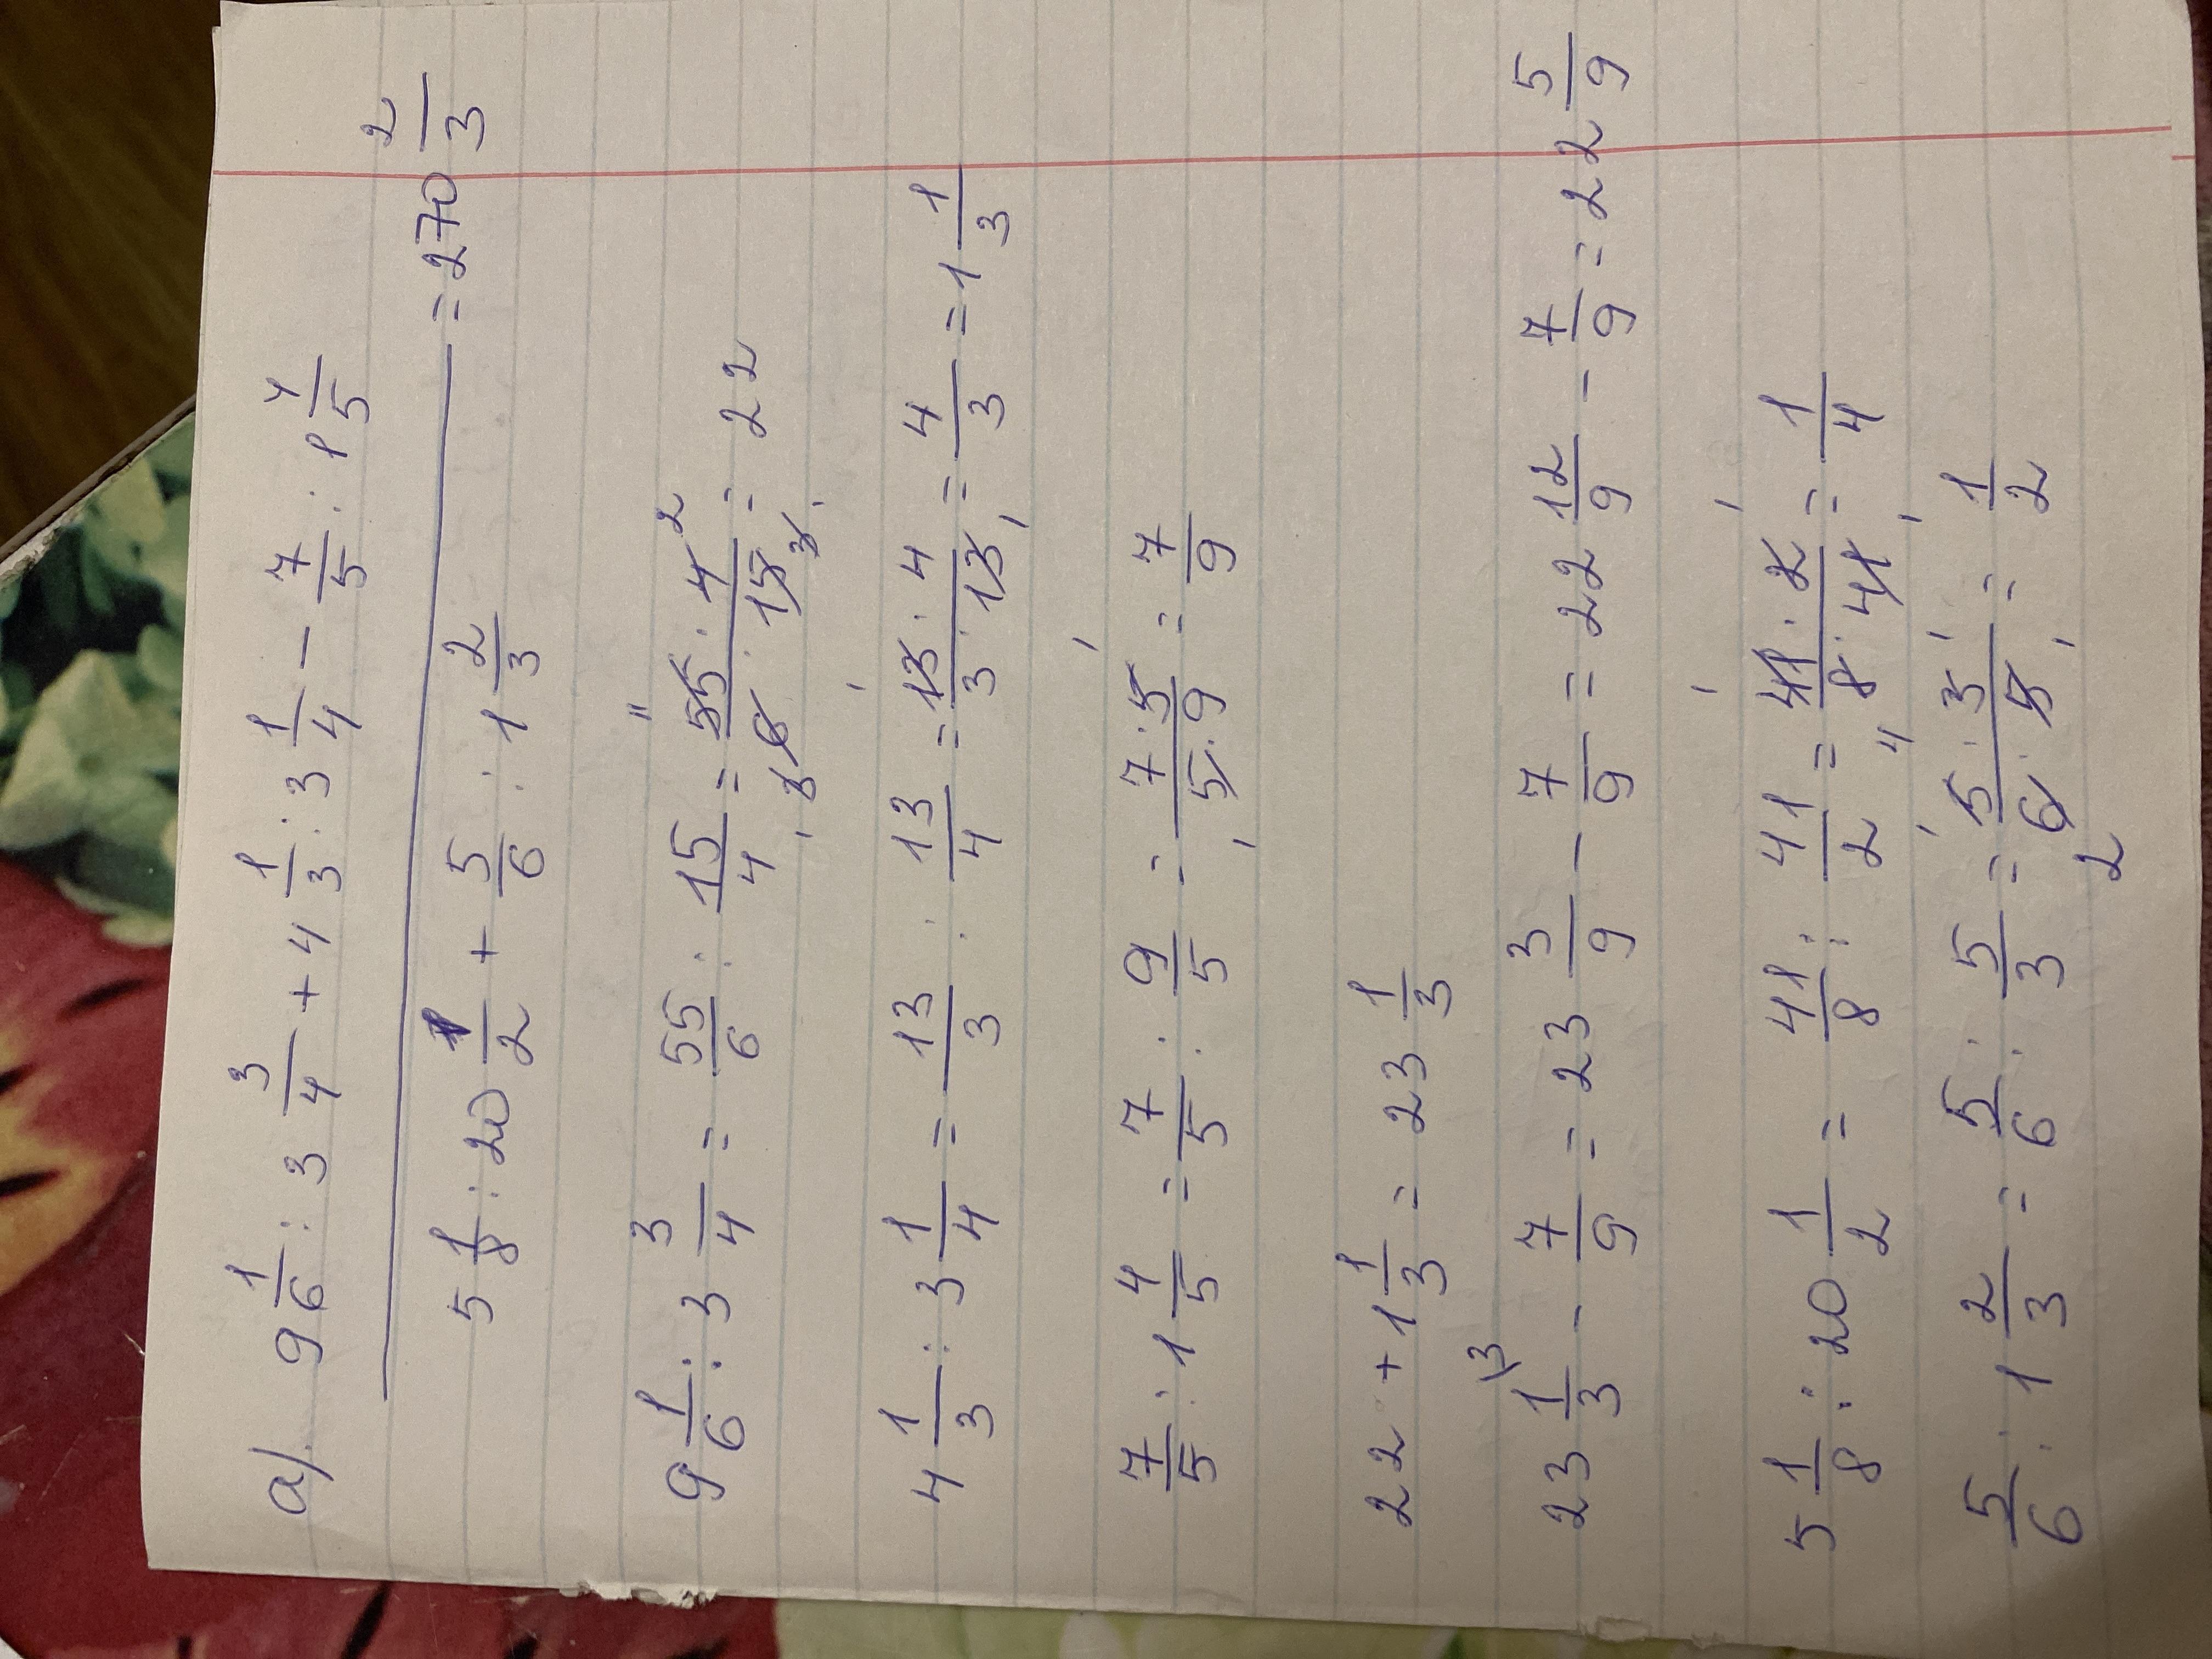 а) 9 1/6 : 3 3/4 + 4 1/3 : 3 1/4 − 7/5 : 1 4/5
5 1/8 : 20 1/2 + 5/6 : 1 2/3 = 270 2/3
9 1/6 : 3 3/4 = 55/6 : 15/4 = 55 · 4 / 6 · 15 = 22
4 1/3 : 3 1/4 = 13/3 : 13/4 = 13 · 4 / 3 · 13 = 4/3 = 1 1/3
7/5 : 1 4/5 = 7/5 : 9/5 = 7 · 5 / 5 · 9 = 7/9
22 + 1 1/3 = 23 1/3
23 1/3 − 7/9 = 23 3/9 − 7/9 = 22 12/9 − 7/9 = 22 5/9
5 1/8 : 20 1/2 = 41/8 : 41/2 = 41 · 2 / 8 · 41 = 1/4
5/6 : 1 2/3 = 5/6 : 5/3 = 5 · 3 / 6 · 5 = 1/2